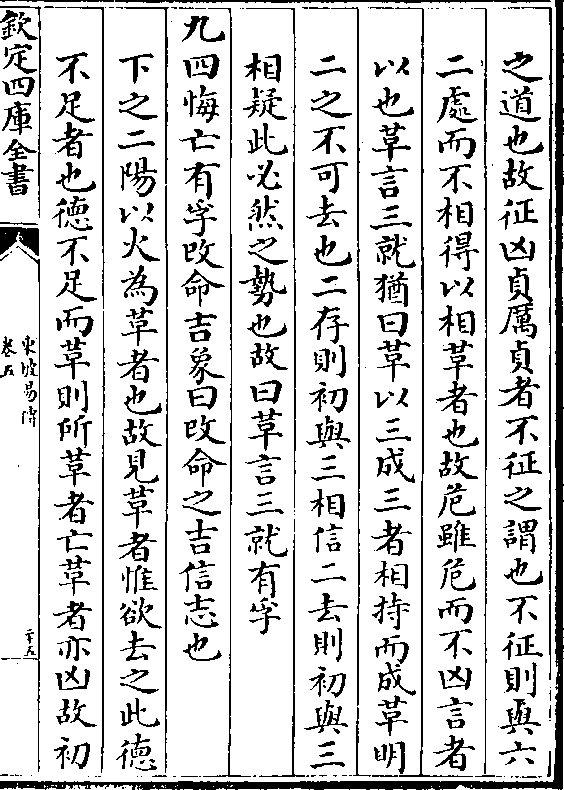 之道也故征凶貞厲貞者不征之謂也不征則與六
二處而不相得以相革者也故危雖危而不凶言者
以也革言三就猶曰革以三成三者相持而成革明
二之不可去也二存則初與三相信二去則初與三
相疑此必然之勢也故曰革言三就有孚
九四悔亡有孚改命吉象曰改命之吉信志也
下之二陽以火為革者也故見革者惟欲去之此德
不足者也德不足而革則所革者亡革者亦凶故初
欽定四庫全書
東坡易傳
卷五
二十五